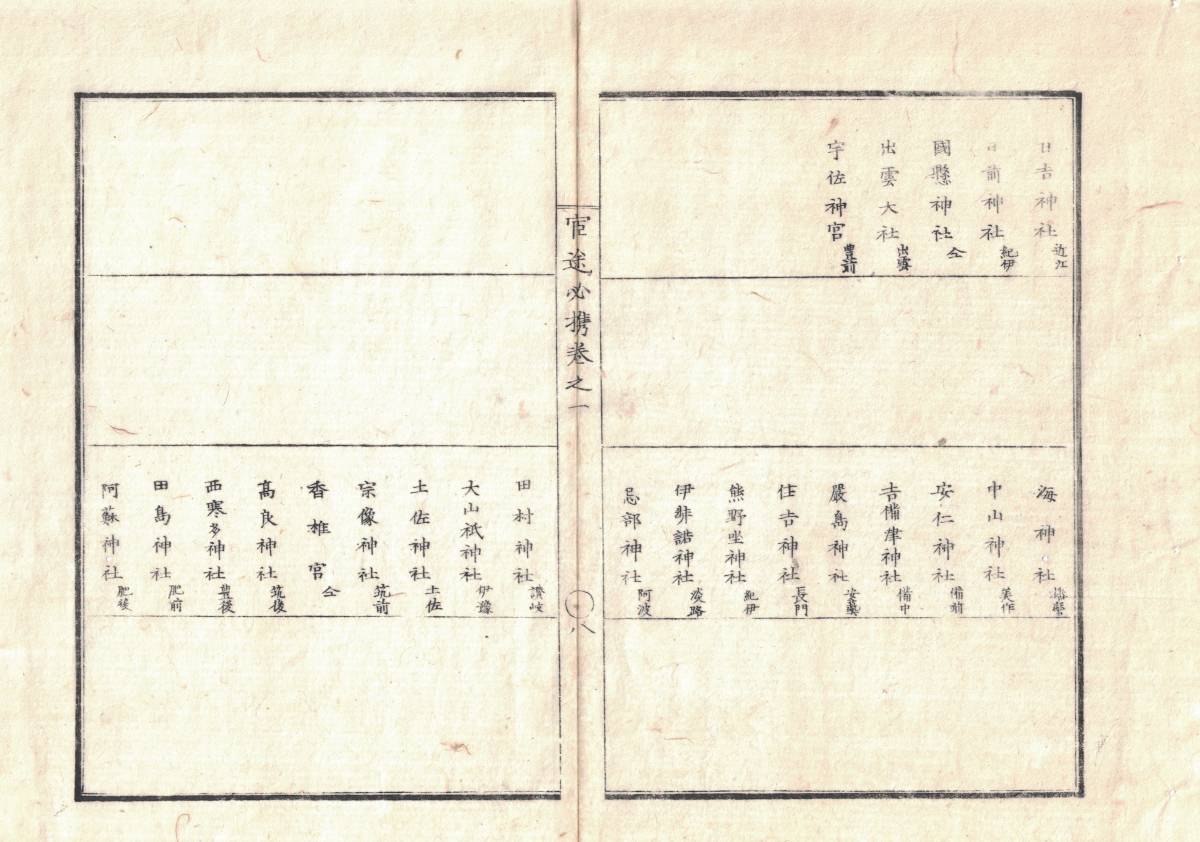 日吉神社 近江
日前神社 紀伊
國懸神社 仝
出雲大社 出雲
宇佐神宮 豊前
海神社 播磨
中山神社 美作
安仁神社 備前
吉備津神社 備中
嚴島神社 安藝
住吉神社 長門
熊野坐神社 紀伊
伊弉諾神社 淡路
忌部神社 阿波
官途必携卷之一
八
田村神社 讃岐
大山祇神社 伊豫
土佐神社 土佐
宗像神社 筑前
香椎宮 仝
髙良神社 筑後
西寒多神社 豊後
田島神社 肥前
阿蘇神社 肥後